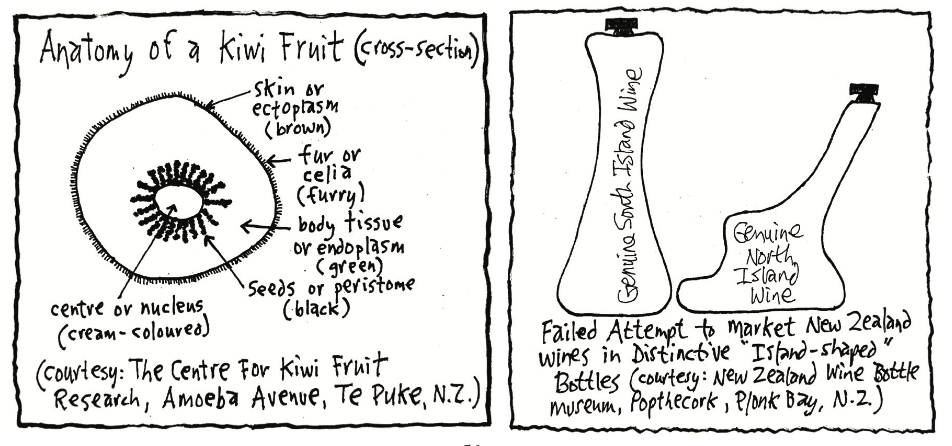 Anatomy of a Kiwi Fruit (cross-section)
skin or
ectoplasm
(brown)
fur or
celia
(furry)
body tissue
or endoplasm
(green)
seeds or peristome
(black)
centre or nucleus
(cream-coloured)
(courtesy: The Centre For Kiwi Fruit
Research, Amoeba Avenue, Te Puke, N.Z.)
Genuine South Island Wine
Genuine
North
Island
Wine
Failed Attempt to market New Zealand
wines in Distinctive "Island-shaped"
Bottles (courtesy: New Zealand Wine Bottle
museum, Popthecork, Plonk Bay, N.Z.)